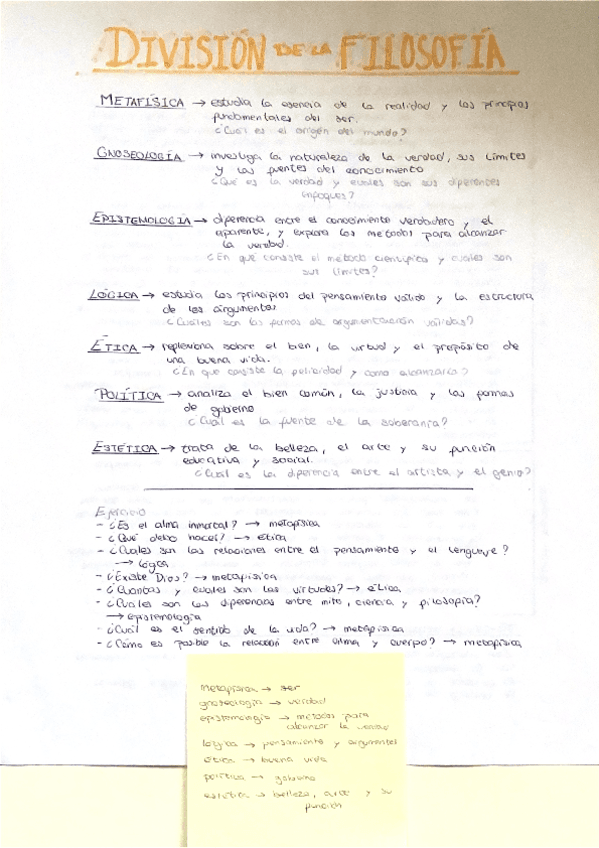 DIVISIÓN DE LA FILOSOFÍA
METAFÍSICA → estudia la esencia de la realidad y los principios
fundamentales del ser.
¿Cuál es el origen del mundo?
GNOSEOLOGÍA → investiga la naturaleza de la verdad, sus límites
y las fuentes del conocimiento
¿Qué es la verdad y cuáles son sus diferentes
enfoques?
EPISTEMOLOGÍA → diferencia entre el conocimiento verdadero y el
aparente, y explora los métodos para alcanzar
la verdad.
¿En qué consiste el método científico y cuáles son
sus límites?
LÓGICA → estudia los principios del pensamiento válido y la estructura
de los argumentos
¿Cuáles son las formas de argumentación válidas?
ÉTICA → reflexiona sobre el bien, la virtud y el propósito de
una buena vida.
¿En que consiste la felicidad y como alcanzarla?
POLÍTICA → analiza el bien común, la justicia y las formas
de gobierno
¿Cuál es la fuente de la soberanía?
ESTÉTICA → trata de la belleza, el arte y su función
educativa y social.
¿Cuál es la diferencia entre el artista y el genio?
Ejercicio
- ¿Es el alma inmortal? → metafísica
- ¿Qué debo hacer? → ética
- ¿Cuáles son las relaciones entre el pensamiento y el lenguaje?
→ lógica
- ¿Existe Dios? → metafísica
- ¿Cuántas y cuáles son las virtudes? → ética
- ¿Cuáles son las diferencias entre mito, ciencia y filosofía?
→ epistemología
- ¿Cuál es el sentido de la vida? → metafísica
- ¿Cómo es posible la relación entre alma y cuerpo? → metafísica
Metafísica → ser
gnoseología → verdad
epistemología → métodos para
alcanzar la verdad
lógica → pensamiento y argumentos
ética → buena vida
política → gobierno
estética → belleza, arte y su
función